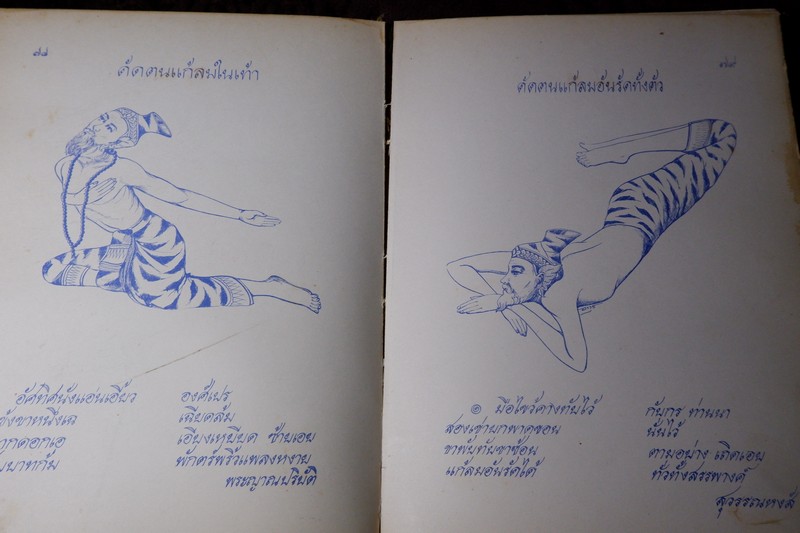 ๗๘
ดัดตนแก้ลมในเท้า
อัศทิศนั่งแอ่นเอี้ยว องค์แปร
ขาหนึ่งเฉ เฉียดล้ม
เอียงเหยียด ซ้ายเอย
พักตร์พริ้วแพลงหงาย
พระญาณปริยัติ
๗๙
ดัดตนแก้ลมอันรัดทั้งตัว
๏ มือไขว้คางทับไว้ กับกร ท่านนา
สองเข่ายกพาดซอน นั้นไว้
ขาพับทับขาซ้อน ตามอย่าง เถิดเอย
แก้ลมอันรัดได้ ทั่วทั้งสรรพางค์
สุวรรณหงส์